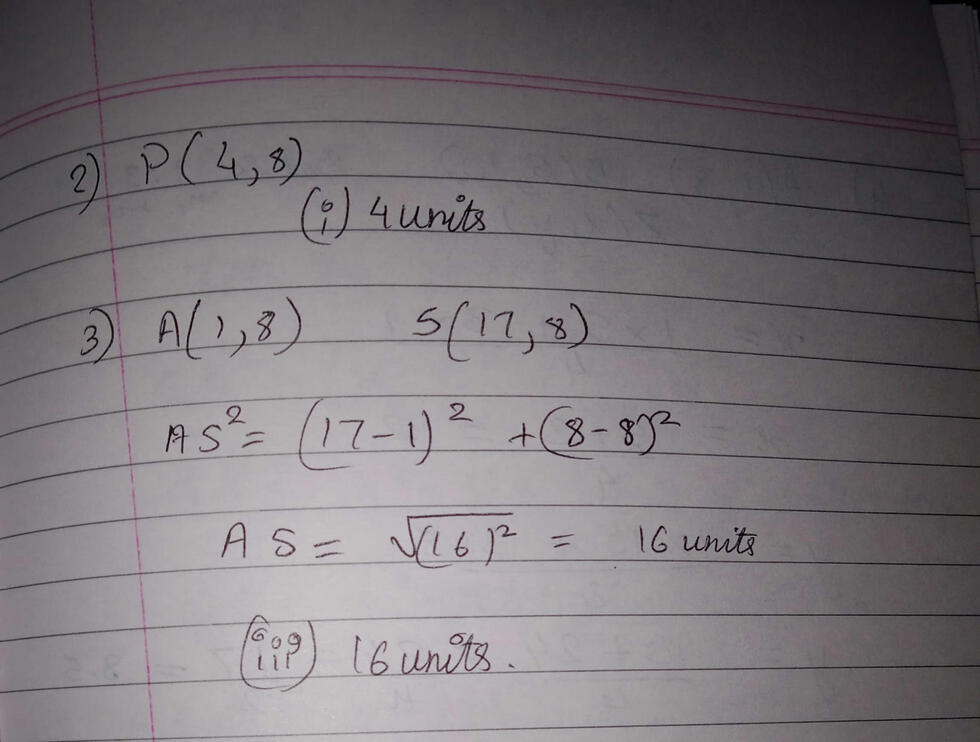 2) P(4,8)
(i) 4 units
3) A(1,8) S(17,8)
AS²= (17-1)² +(8-8)²
AS = √(16)² = 16 units
(iii) 16 units.